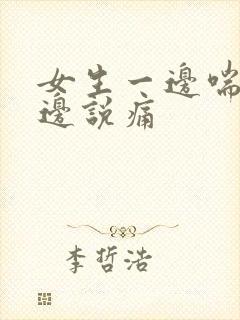 女生一邊喘
邊說痛
李哲浩